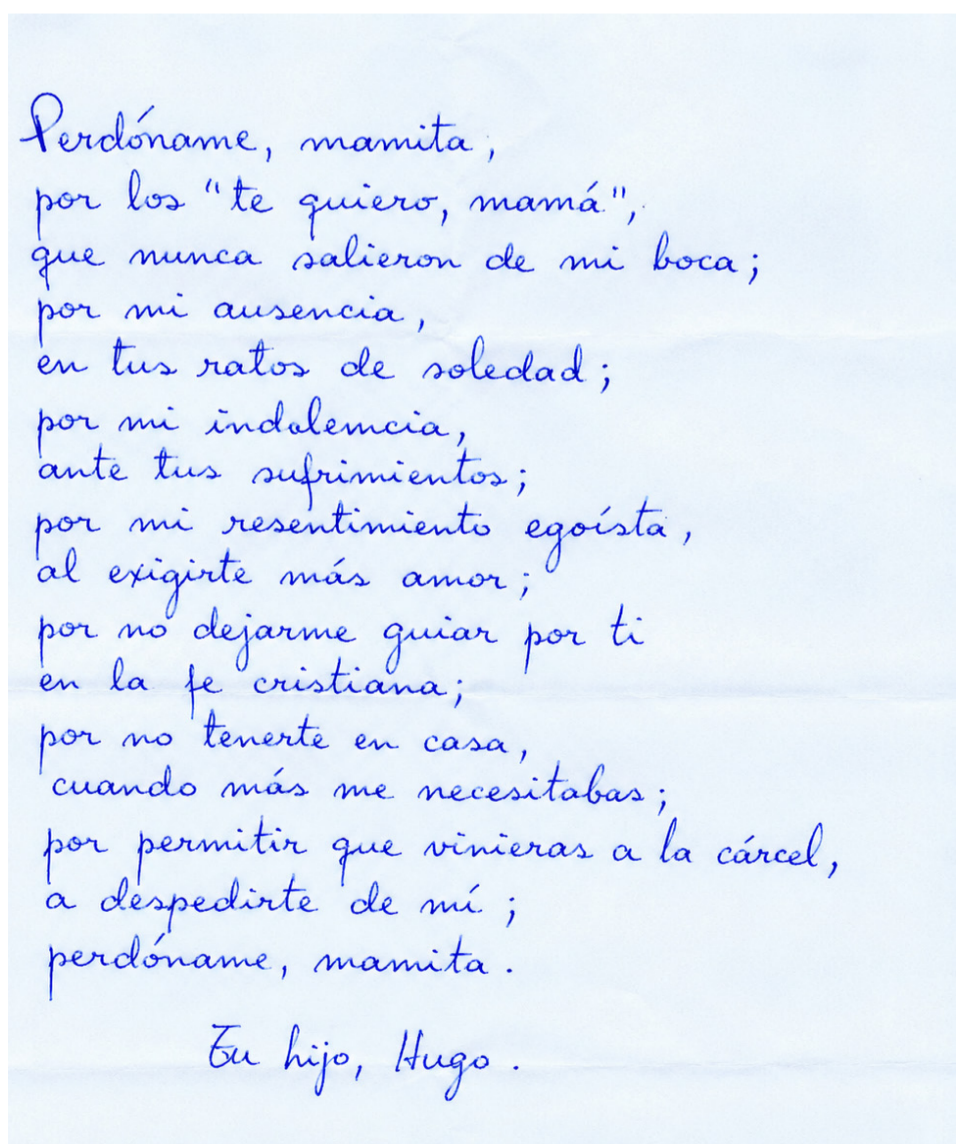 Perdóname, mamita,
por los "te quiero, mamá",
que nunca salieron de mi boca;
por mi ausencia,
en tus ratos de soledad;
por mi indolencia,
ante tus sufrimientos;
por mi resentimiento egoísta,
al exigirte más amor;
por no dejarme guiar por ti
en la fe cristiana;
por no tenerte en casa,
cuando más me necesitabas;
por permitir que vinieras a la cárcel,
a despedirte de mí;
perdóname, mamita.
Tu hijo, Hugo.